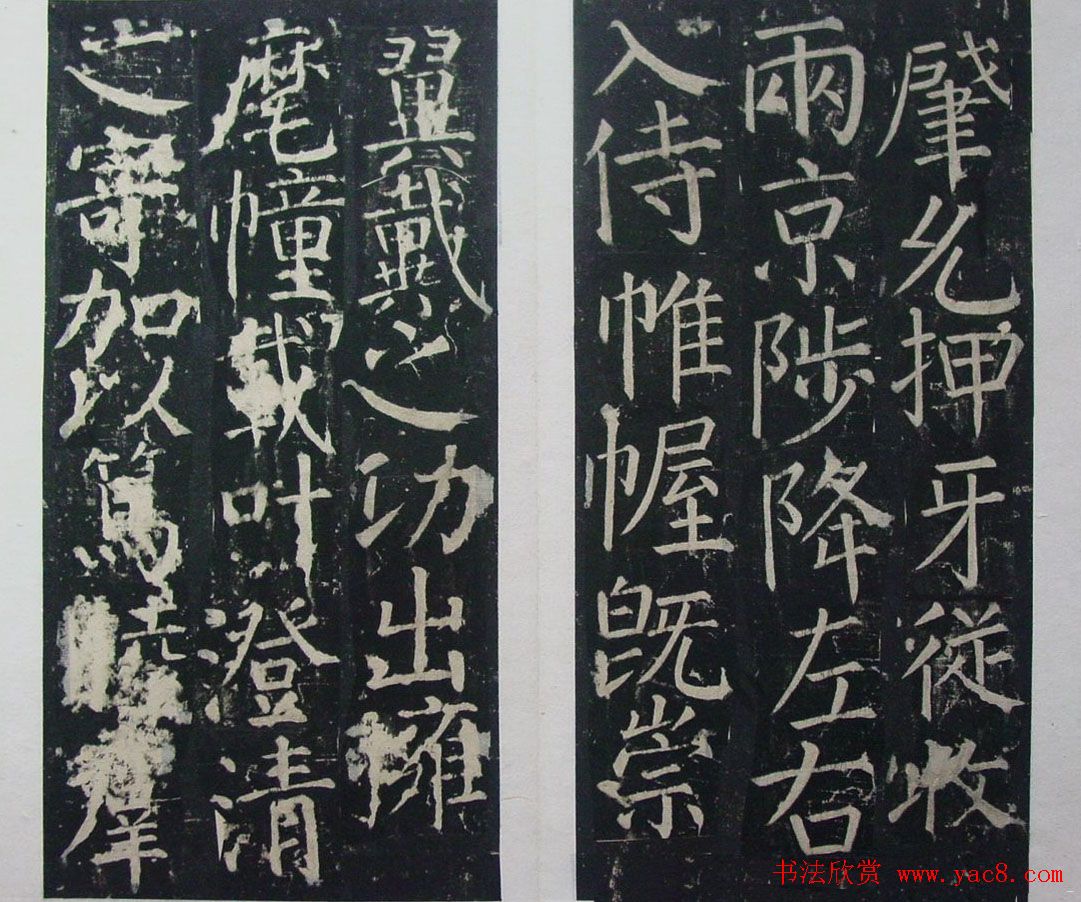 肇允押牙從收
兩京陟降左右
入侍帷幄既崇
翼戴之功出擁
麾幢載叶澄清
之寄加以篤羣
书法欣赏 www.yac8.com